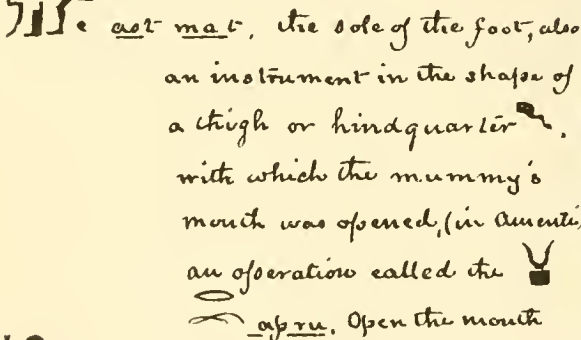 ast mat, the sole of the foot, also
an instrument in the shape of
a thigh or hindquarter
with which the mummy's
mouth was opened, (in Amenti,
an operation called the
ap ru. Open the mouth